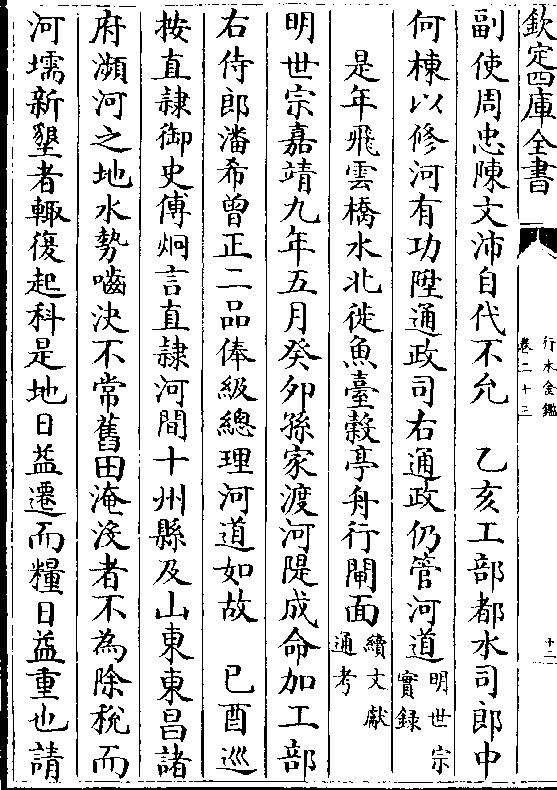 欽定四庫全書
行水金鑑
卷二十三
十二
副使周忠陳文沛自代不允　乙亥工部都水司郎中
何棟以修河有功陞通政司右通政仍管河道明世宗實録
是年飛雲橋水北徙魚臺穀亭舟行閘面續文獻通考
明世宗嘉靖九年五月癸夘孫家渡河隄成命加工部
右侍郎潘希曾正二品俸級總理河道如故　已酉巡
按直隷御史傅炯言直隷河間十州縣及山東東昌諸
府瀕河之地水勢嚙決不常舊田淹没者不為除税而
河壖新墾者輒復起科是地日益遷而糧日益重也請